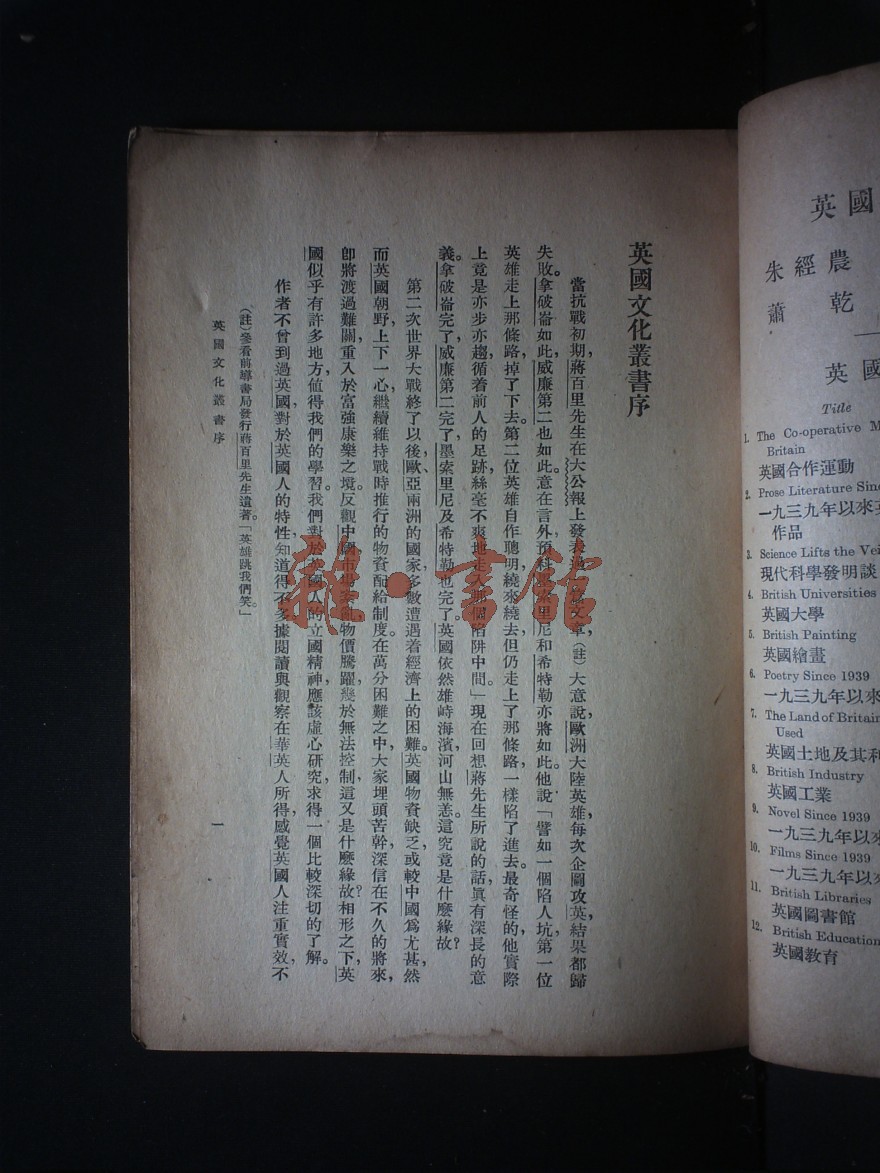 英國文化叢書序
當抗戰初期，蔣百里先生在大公報上發表過一篇文章，（註）大意說歐洲大陸英雄，每次企圖攻英，結果都歸
失敗。拿破崙如此，威廉第二也如此。意在言外，預料墨索里尼和希特勒亦將如此。他說「譬如一個陷人坑，第一位
英雄走上那條路，掉了下去。第二位英雄自作聰明，繞來繞去，但仍走上了那條路，一樣陷了進去。最奇怪的，他實際
上竟是亦步亦趨，循着前人的足跡，絲毫不爽地走入那個陷阱中間。」現在回想蔣先生所說的話，眞有深長的意
義。拿破崙完了，威廉第二完了，墨索里尼及希特勒也完了。英國依然雄峙海濱，河山無恙。這究竟是什麼緣故？
第二次世界大戰終了以後，歐、亞兩洲的國家，多數遭遇着經濟上的困難。英國物資缺乏，或較中國爲尤甚，然
而英國朝野上下一心，繼續維持戰時推行的物資配給制度。在萬分困難之中，大家埋頭苦幹，深信在不久的將來，
卽將渡過難關，重入於富強康樂之境。反觀中國市場紊亂，物價騰躍，幾於無法控制，這又是什麼緣故？相形之下，英
國似乎有許多地方，値得我們的學習。我們對於英國人的立國精神，應該虛心研究，求得一個比較深切的了解。
作者不曾到過英國，對於英國人的特性，知道得不多。據閱讀與觀察在華英人所得，感覺英國人注重實效，不
（註）參看前導書局發行蔣百里先生遺著「英雄跳我們笑。」
英國文化叢書序
一
雜·書館
英國
朱經農
蕭乾
英國
Title
1. The Co-operative M
Britain
英國合作運動
2. Prose Literature Sinc
一九三九年以來英
作品
3. Science Lifts the Vei
現代科學發明談
4. British Universities
英國大學
5. British Painting
英國繪畫
6. Poetry Since 1939
一九三九年以來
7. The Land of Britain
Used
英國土地及其利
8. British Industry
英國工業
9. Novel Since 1939
一九三九年以來
10. Films Since 1939
一九三九年以來
11. British Libraries
英國圖書館
12. British Education
英國教育